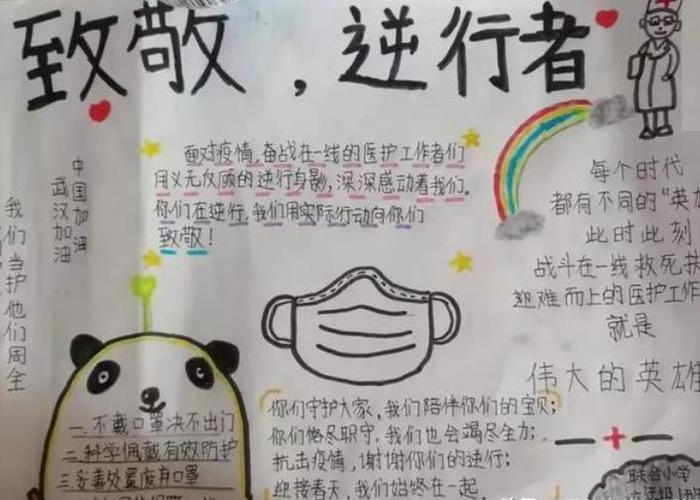 致敬，逆行者
面对疫情,奋战在一线的医护工作者们
用义无反顾的逆行身影,深深感动着我们。
你们在逆行,我们用实际行动向你们
致敬！
中国加油
武汉加油
我们当护他们周全
每个时代
都有不同的"英
此时此刻
战斗在一线救死
迎难而上的医护工
就是
伟大的英雄
一、不戴口罩决不出门
二、科学佩戴有效防护
三、妥善处置废弃口罩
你们守护大家,我们陪伴你们的宝贝;
你们恪尽职守,我们也会竭尽全力;
抗击疫情,谢谢你们的逆行;
迎接春天,我们始终在一起
联合小学